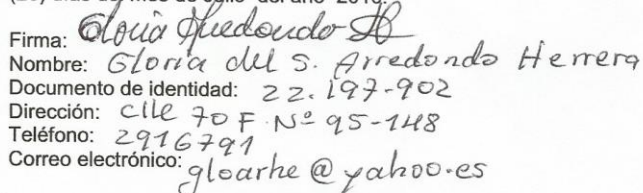 días del mes de Julio del año 2016.
Firma: Gloria Arredondo H
Nombre: Gloria del S. Arredondo Herrera
Documento de identidad: 22.197-902
Dirección: clle 70 F Nº 95-148
Teléfono: 2916791
Correo electrónico: gloarhe@yahoo.es